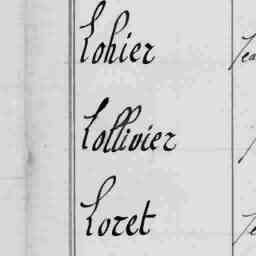 Lohier
Lollivier
Loret